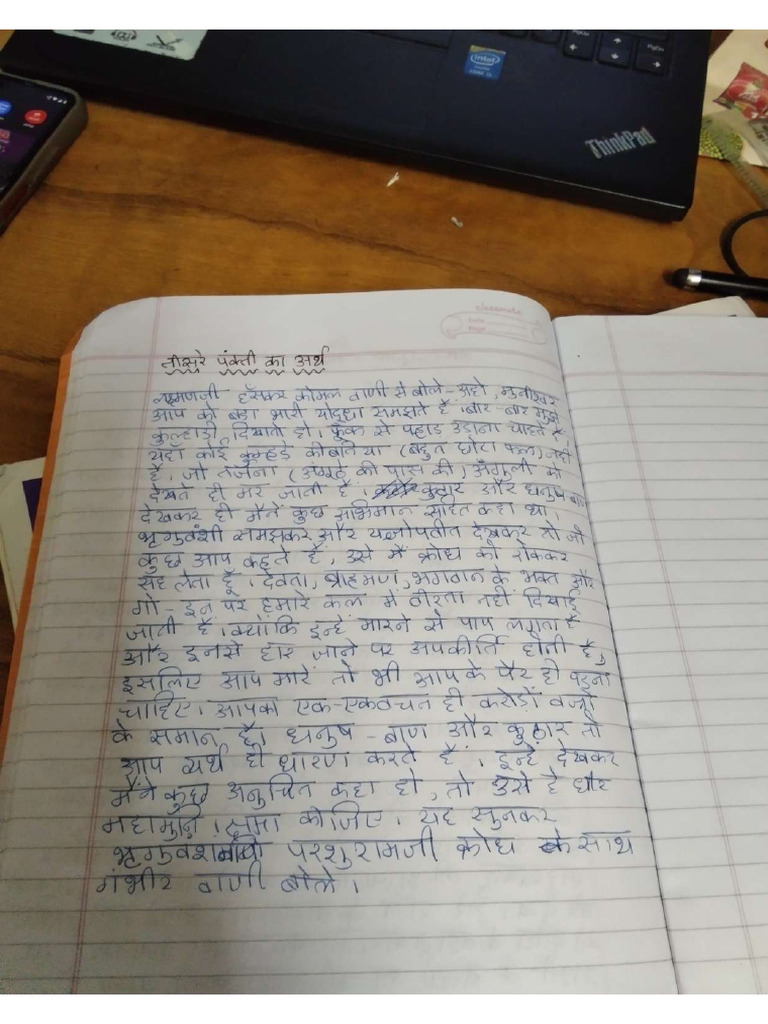 intel
ThinkPad
classmate
Date
Page
तीसरे पंक्ती का अर्थ
लक्ष्मणजी हँसकर कोमल वाणी से बोले - अहो, मुनीश्वर
आप को बडा भारी योद्धा समझते है। बार-बार मुझे
कुल्हाडी दिखाते हो। फूँक से पहाड उडाना चाहते है,
यहाँ कोई कुम्हड़े की बतिया (बहुत छोटा फल) नही
है, जो तर्जनी (अंगूठे की पास की) अंगुली को
देखते ही मर जाती है। कुठार और धनुष बाण
देखकर ही मैनें कुछ अभिमान सहित कहा था।
भृगुवंशी समझकर और यज्ञोपवीत देखकर तो जो
कुछ आप कहते है, उसे मैं क्रोध को रोककर
सह लेता हूँ। देवता, ब्राहमण, भगवान के भक्त और
गो - इन पर हमारे कुल में वीरता नही दिखाई
जाती है। क्योंकि इन्हें मारने से पाप लगता है
और इनसे हार जाने पर अपकीर्ति होती है,
इसलिए आप मारें तो भी आपके पैर ही पड़ना
चाहिए। आपका एक-एक वचन ही करोड़ों वज्रों
के समान है। धनुष - बाण और कुठार तो
आप व्यर्थ ही धारण करते है। इन्हें देखकर
मैंने कुछ अनुचित कहा हो, तो उसे हे धीर
महामुनि। क्षमा कीजिए। यह सुनकर
परशुरामजी क्रोध के साथ
गंभीर वाणी बोले।